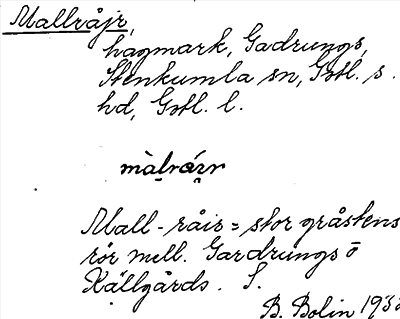 Mallråjr,
hagmark, Gadrungs,
Stenkumla sn, Gotl. s.
hd, Gotl. l.
màlrá̀ır
Mall-råir = stor gråstens
rör mell. Gardrungs o
Källgårds. S.
B. Bolin